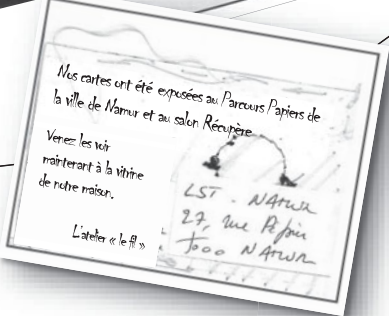 Nos cartes ont été exposées au Parcours Papiers de
la ville de Namur et au salon Récupère
Venez les voir
maintenant à la vitrine
de notre maison.
L'atelier « le fil »
LST - NAMUR
27, rue Pépin
5000 NAMUR